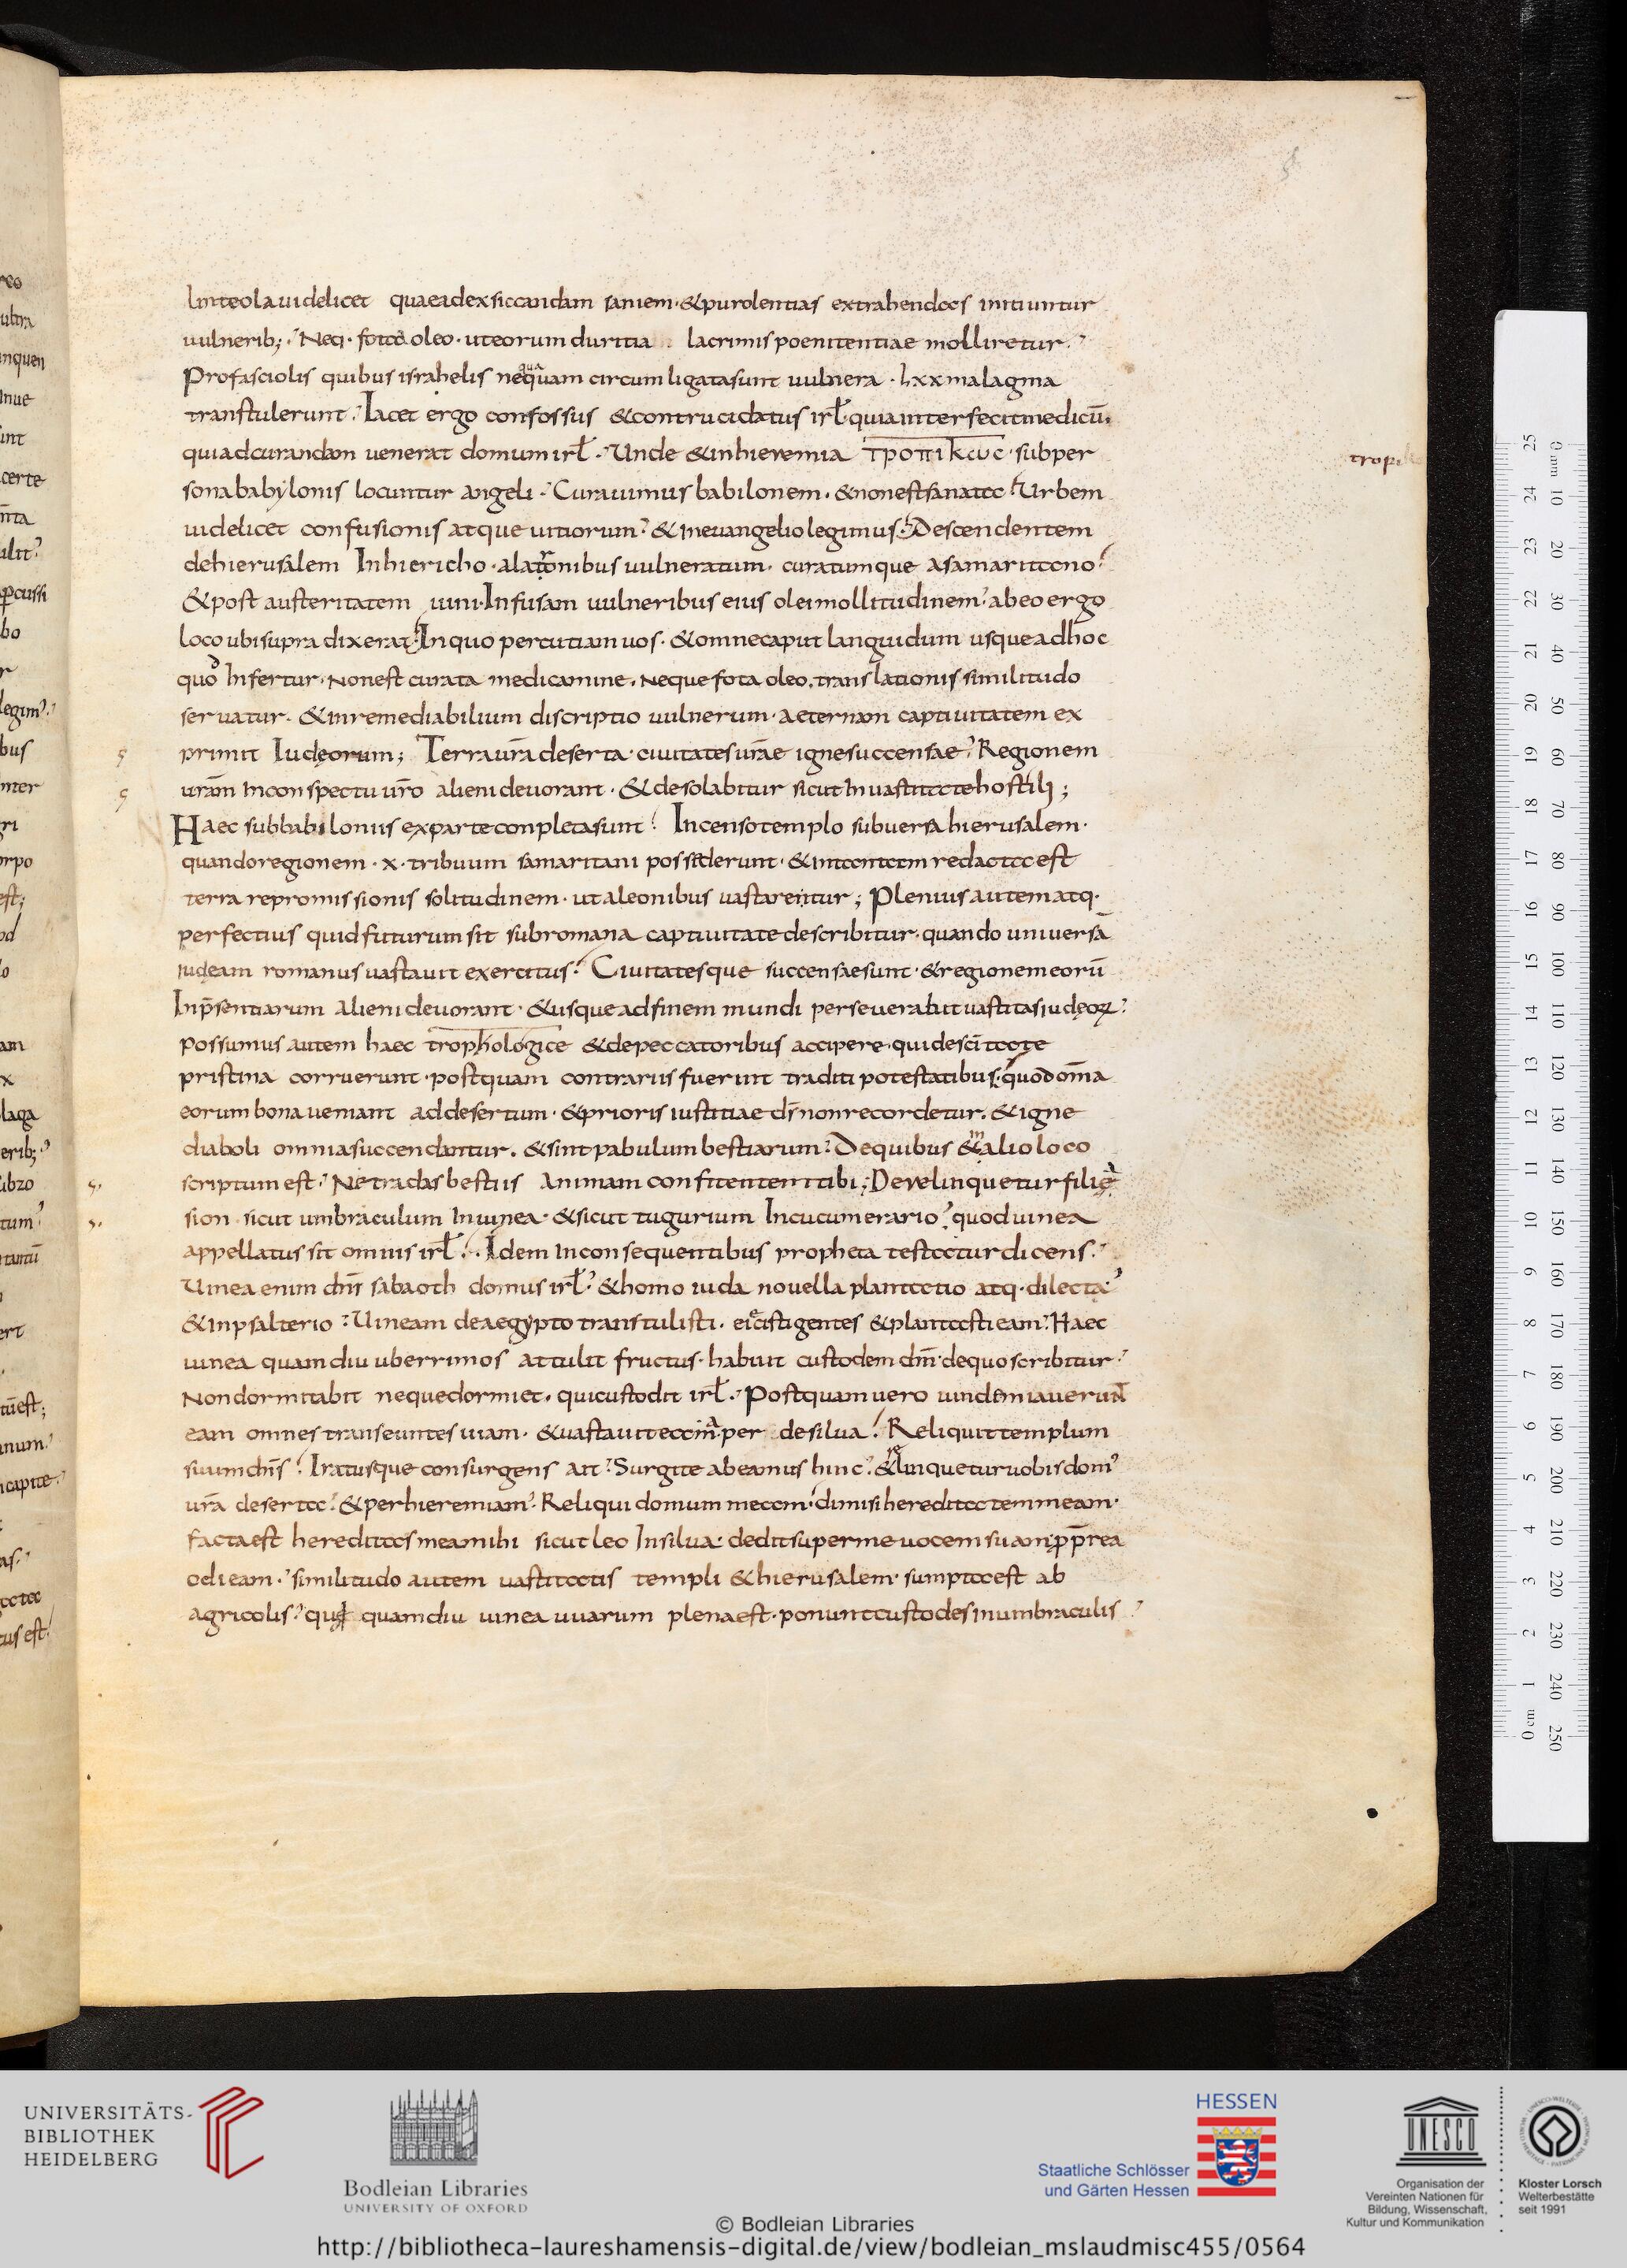 linteola uidelicet quae adexsiccandam saniem · & purolentias extrahendas iniciuntur
uulnerib; · Neq · fota oleo · ut eorum duritia lacrimis poenitentiae molliretur ·
Profasciolis quibus israhelis nequaquam circumligata sunt uulnera · lxx malagma
transtulerunt · Iacet ergo confossus & contrucidatus irl̄ · quia interfecit medicū ·
qui adcurandam uenerat domum irl̄ · Unde & inhieremia τροπικωc · subper
sona babylonis locuntur angeli · Curauimus babilonem · & non est sanata · Urbem
uidelicet confusionis atque uitiorum · & ineuangelio legimus · Descendentem
dehierusalem Inhiericho · alatronibus uulneratum · curatumque asamaritano
& post austeritatem uini · Infusam uulneribus eius olei mollitudinem · abeo ergo
loco ubi supra dixerat · Inquo percutiam uos · & omne caput languidum usque adhoc
quod Infertur · Non est curata medicamine · Neque fota oleo · translationis similitudo
seruatur · & inremediabilium discriptio uulnerum · aeternam captiuitatem ex
primit Iudęorum ; Terra urā deserta · ciuitates urāe igne succensae · Regionem
urām Inconspectu urō alieni deuorant · & desolabitur sicut In uastitate hostili ;
Haec subbabiloniis exparte conpleta sunt · Incenso templo subuersa hierusalem ·
quando regionem · x · tribuum samaritani possederunt · & intantam redacta est
terra repromissionis solitudinem · ut aleonibus uastarentur ; Plenius autem atq ·
perfectius quid futurum sit subromana captiuitate describitur · quando uniuersā
iudęam romanus uastauit exercitus · Ciuitatesque succensae sunt · & regionem eorū
Inpr̄sentiarum alieni deuorant · & usque adfinem mundi perseuerabit uastitas iudęoꝝ ·
Possumus autem haec trophologice & depeccatoribus accipere · qui desc̄itate
pristina corruerunt · postquam contrariis fuerunt traditi potestatibus · quod om̄a
eorum bona ueniant addesertum · & prioris iustitiae dn̄s non recordetur · & igne
diaboli omnia succendantur · & sint pabulum bestiarum · Dequibus & in alio loco
scriptum est · Ne tradas bestiis Animam confitentem tibi ; Derelinquetur filia
sion · sicut umbraculum In uinea · & sicut tugurium Incucumerario · quod uinea
appellatus sit omnis irl̄ · Idem Inconsequentibus propheta testatur dicens ·
Uinea enim dn̄i sabaoth domus irl̄ · & homo iuda nouella plantatio atq · dilecta ·
& inpsalterio · Uineam deaegypto transtulisti · eiecisti gentes & plantasti eam · Haec
uinea quamdiu uberrimos attulit fructus · habuit custodem dn̄m · dequo scribitur ·
Non dormitabit neque dormiet · qui custodit irl̄ · Postquam uero uindemiauerunt
eam omnes transeuntes uiam · & uastauit eam aper desilua · Reliquit templum
suum dn̄s · Iratusque consurgens ait · Surgite abeamus hinc · & relinquetur uobis dom'
urā deserta · & perhieremiam · Reliqui domum meam · dimisi hereditatem meam ·
facta est hereditas mea mihi sicut leo Insilua · dedit superme uocem suam · ppr̄ea
odi eam · similitudo autem uastitatis templi & hierusalem · sumpta est ab
agricolis · qui quamdiu uinea uuarum plena est · ponunt custodes inumbraculis ·
tropi
UNIVERSITÄTS-
BIBLIOTHEK
HEIDELBERG
Bodleian Libraries
UNIVERSITY OF OXFORD
HESSEN
Staatliche Schlösser
und Gärten Hessen
UNESCO
Organisation der
Vereinten Nationen für
Bildung, Wissenschaft,
Kultur und Kommunikation
Kloster Lorsch
Welterbestätte
seit 1991
© Bodleian Libraries
http://bibliotheca-laureshamensis-digital.de/view/bodleian_mslaudmisc455/0564